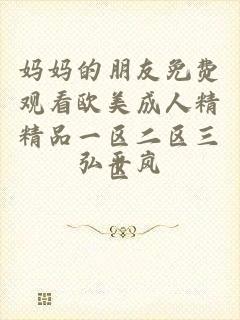 妈妈的朋友免费
观看欧美成人精
精品一区二区三
弘岚